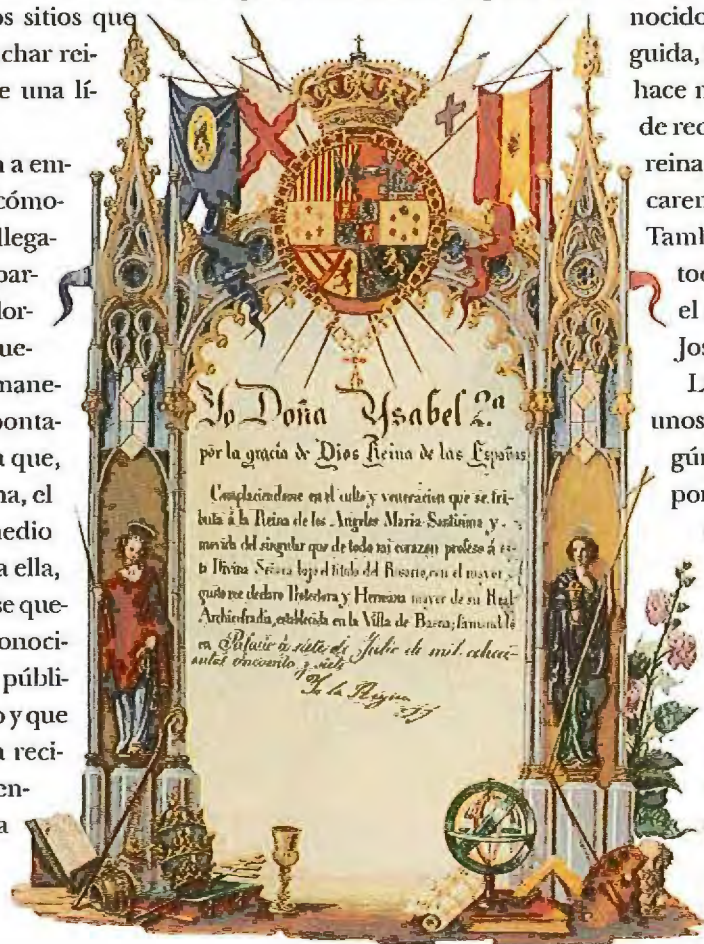 os sitios que
char rei-
e una lí-
a a em-
cómo-
llega-
par-
lor-
ue-
mane-
ponta-
a que,
na, el
nedio
a ella,
se que-
onoci-
públi-
o y que
a reci-
en-
a
Yo Doña Ysabel 2.ª
por la gracia de Dios Reina de las Españas
Complaciendome en el culto y veneracion que se tri-
buta á la Reina de los Angeles Maria Santisima y
movida del singular que de todo mi corazon profeso á es-
ta Divina Señora bajo el titulo del Rosario, con el mayor
gusto me declaro Protectora y Hermana mayor de su Real
Archicofradia, establecida en la Villa de Baena;
en Palacio á siete de Julio de mil ochoci-
entos cincuenta y siete
Yo la Reyna
nocido
guida,
hace n
de rec
reina
caren
Tamb
toc
el
Jos
L
unos
gún
por